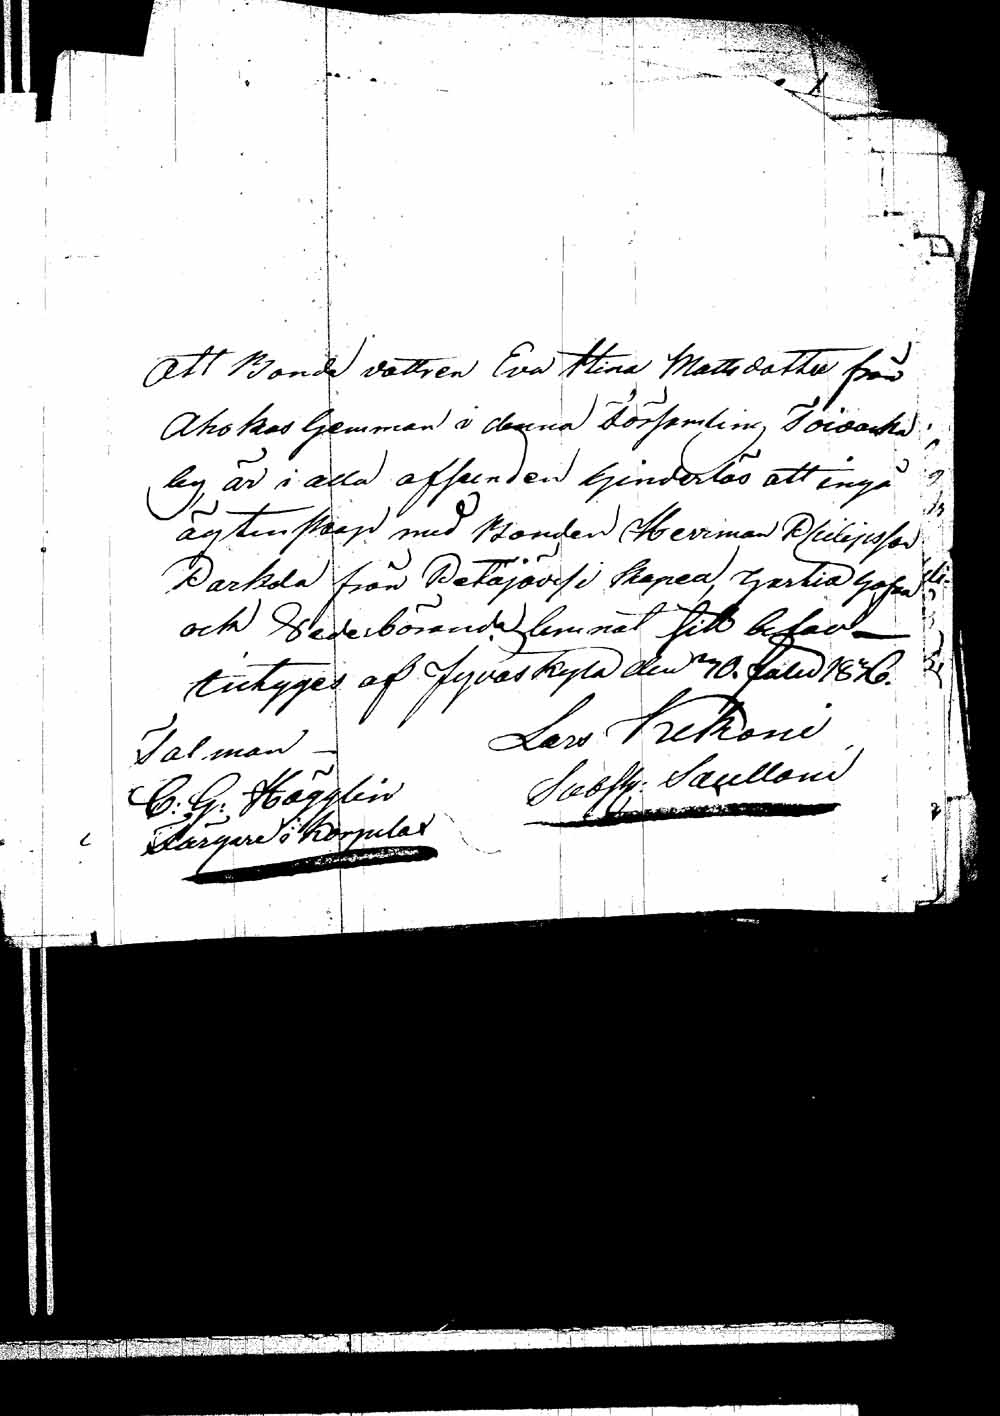 Att Bonda dottren Eva Stina Mattsdotter från
Ahokas hemman i denna Församling Toivacka
by är i alla afseenden hinderlös att ingå
ägtenskap med Bonden Herrman Philipsson
Parkola från Petäjävesi Kapell,
och Vederbörande lemnat sitt
tichyges af Jyväskylä den 10. Juli 1876.
Talman
Lars Kekoni
C. G. Högglin
Färgare i Korpilax